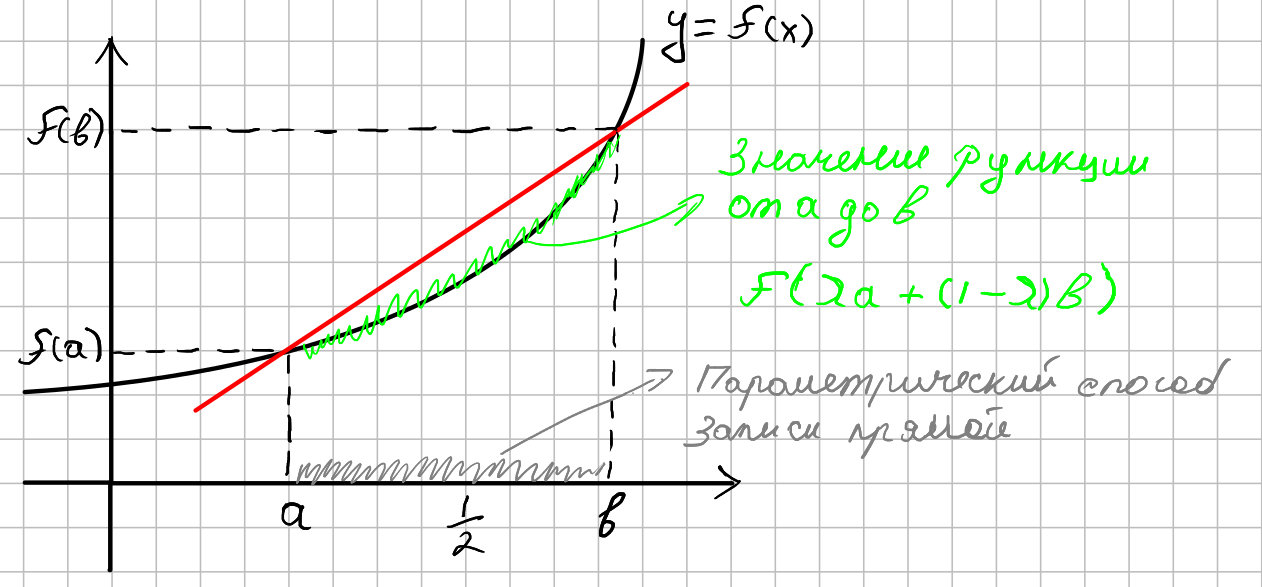 y = f(x)
f(в)
Значение функции
от а до в
f(λa + (1-λ)в)
f(a)
Параметрический способ
записи прямой
a
1/2
в